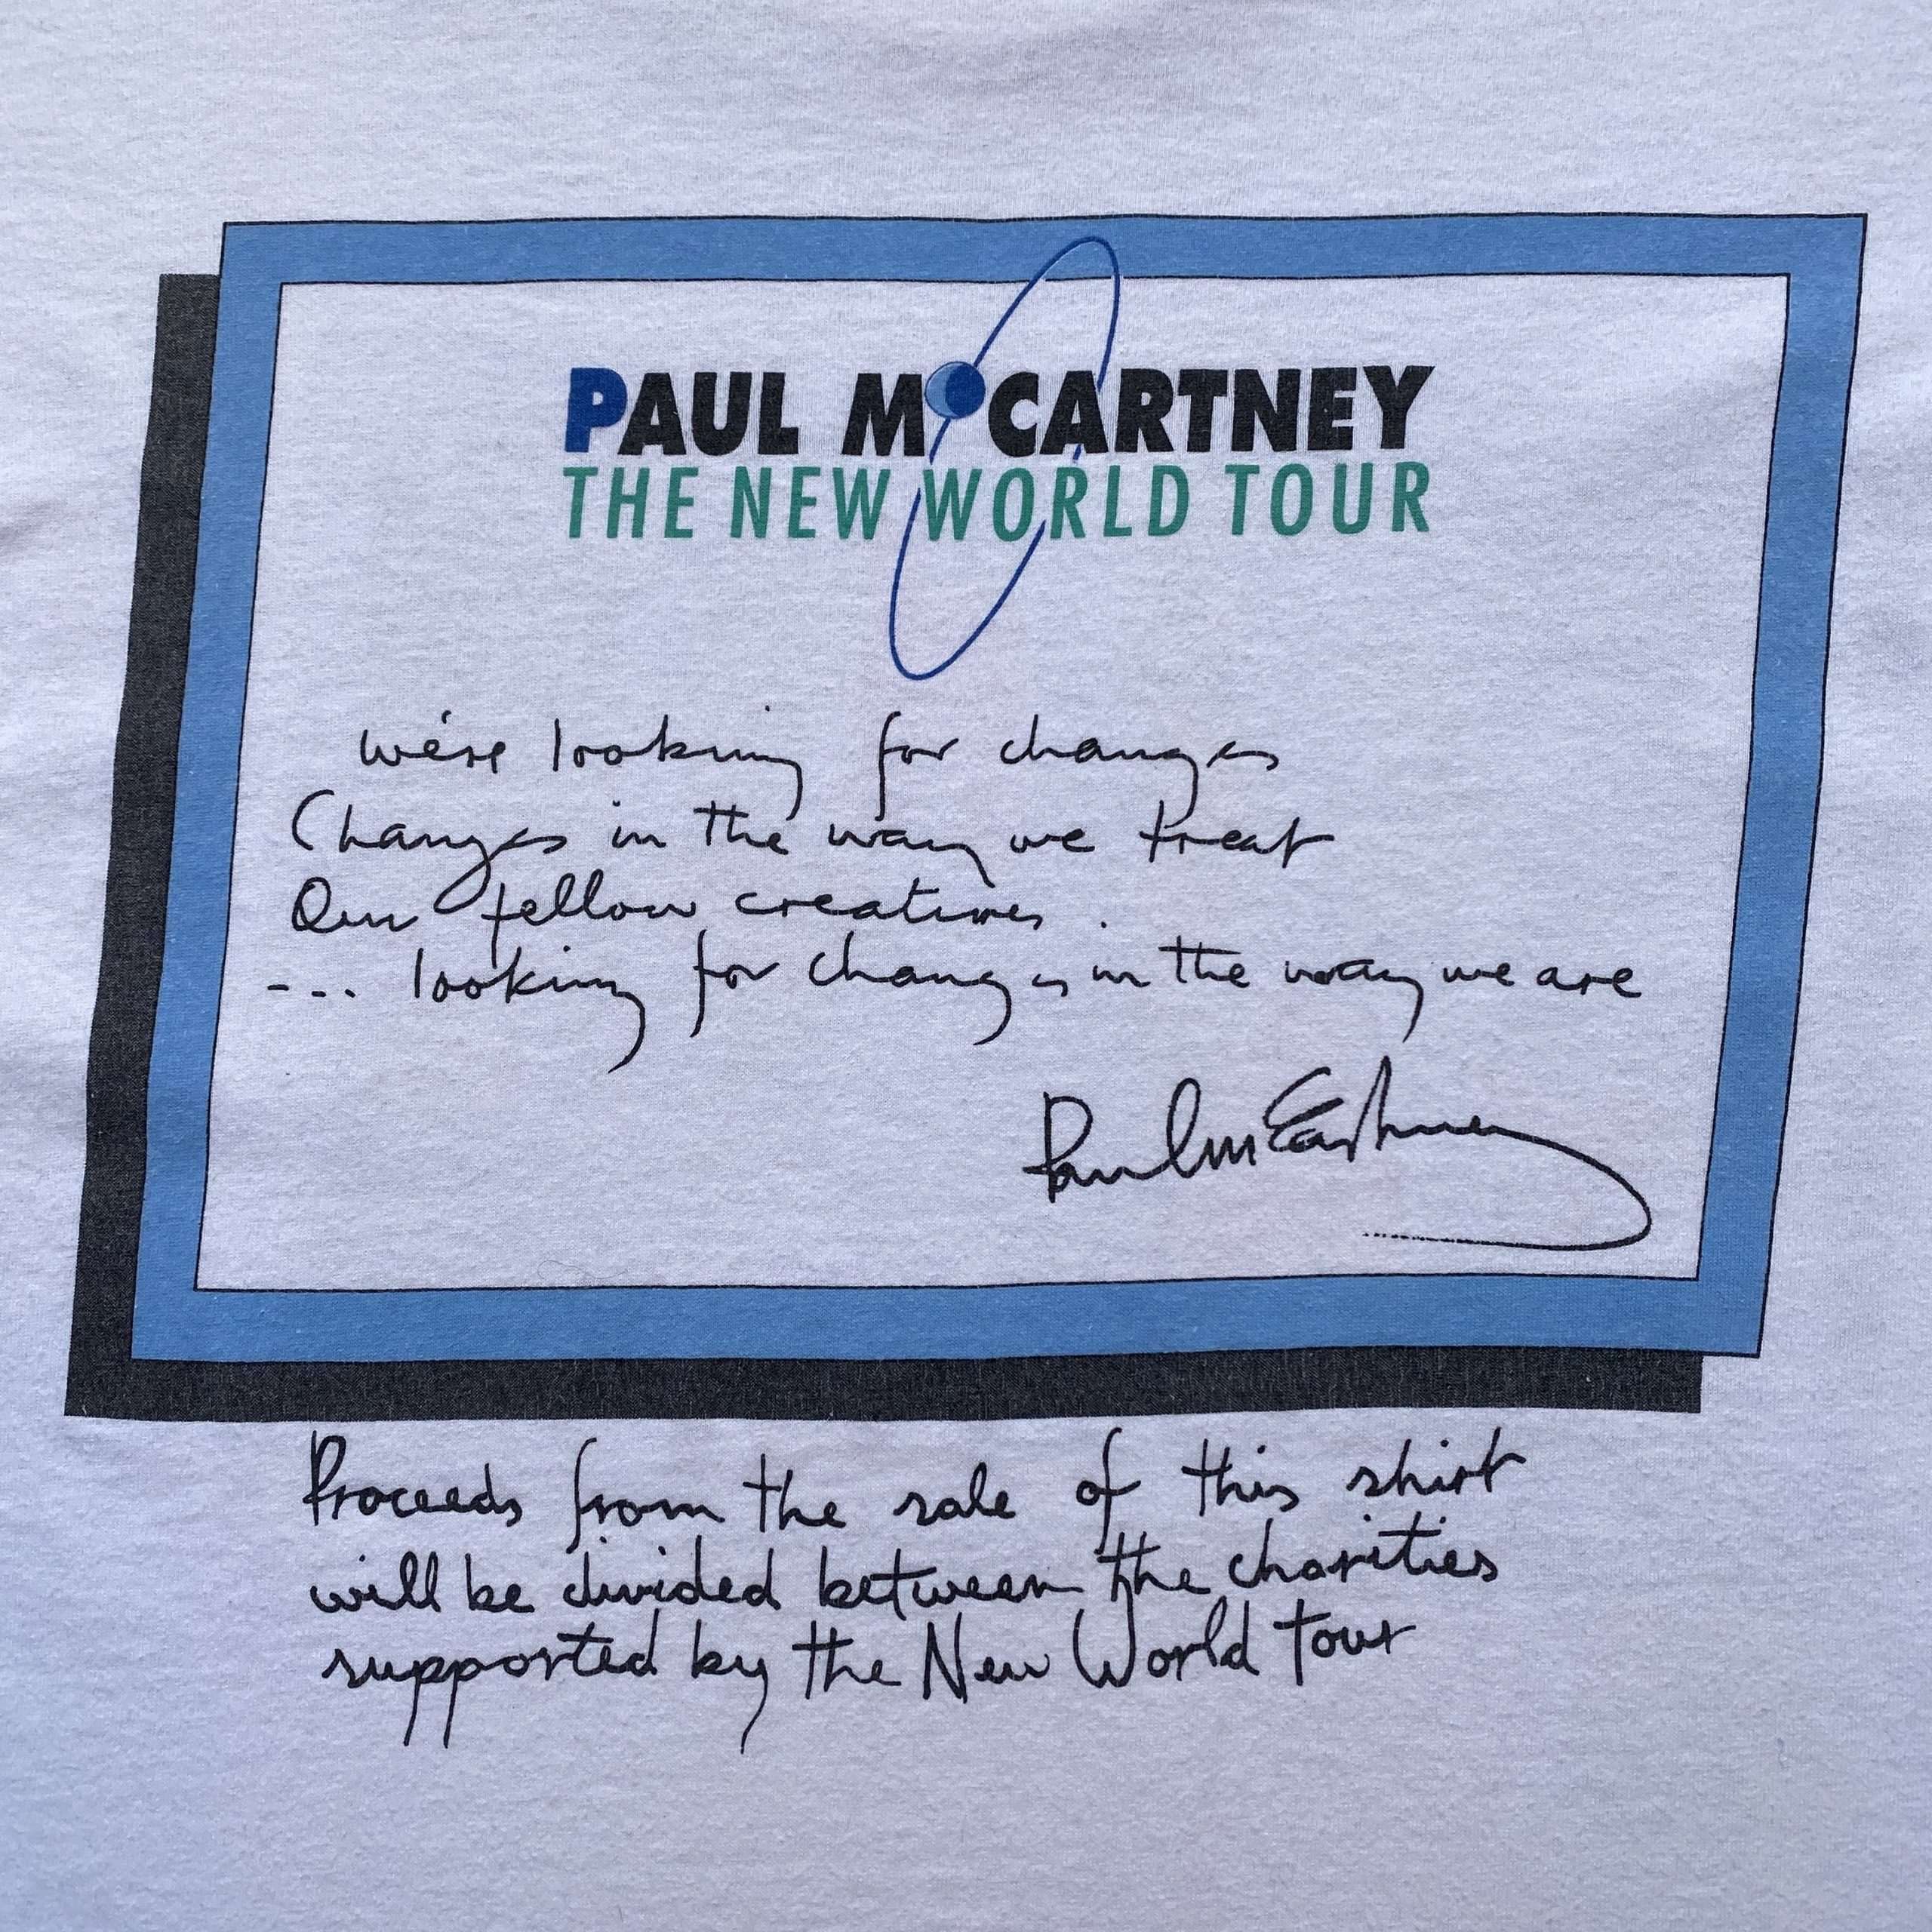 PAUL McCARTNEY
THE NEW WORLD TOUR
we're looking for changes
Changes in the way we treat
Our fellow creatures.
--.. looking for changes in the way we are
Paul McCartney
Proceeds from the sale of this shirt
will be divided between the charities
supported by the New World Tour